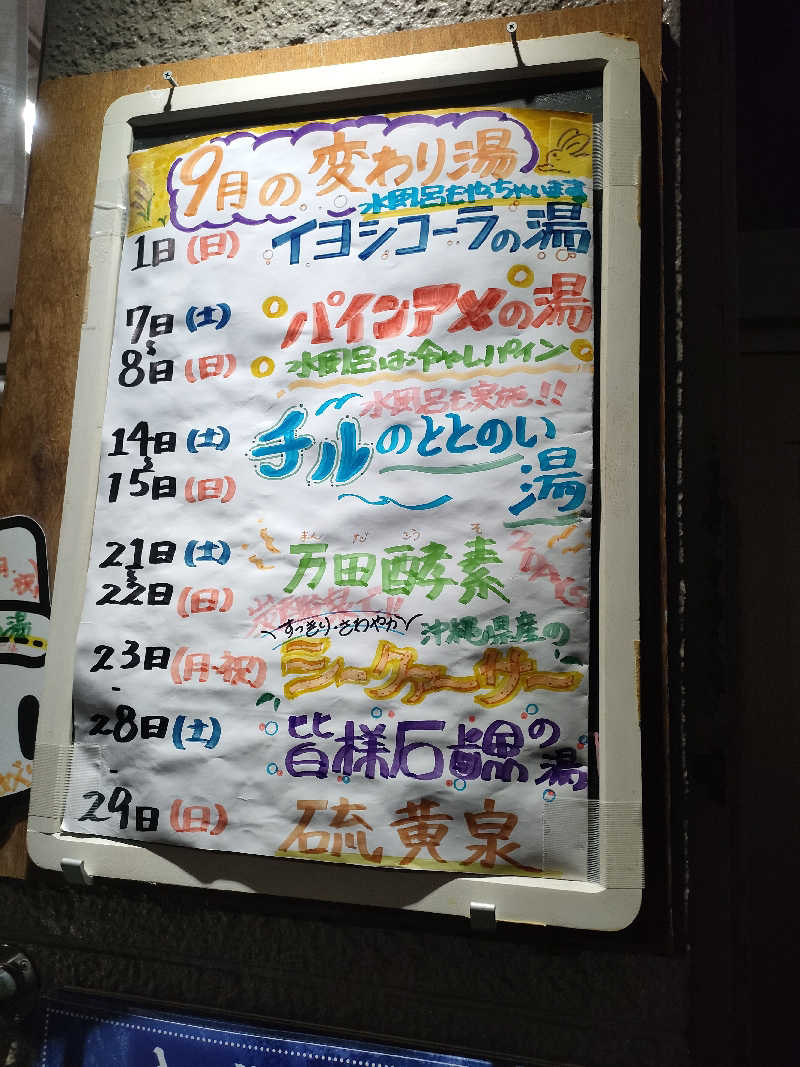 9月の変わり湯
水風呂もやっちゃいます
1日(日) イヨシコーラの湯
7日(土) パインアメの湯
〜
8日(日) 水風呂は冷やしパイン
水風呂も実施!!
14日(土) チルのととのい
〜
15日(日) 湯
まん だ こう そ
21日(土) 万田酵素
〜
22日(日) 2DAYS
すっきり・さわやか 沖縄県産の
23日(月・祝) シークァーサー
28日(土) 皆様石鹸の湯
29日(日) 硫黄泉
月・祝)
湯